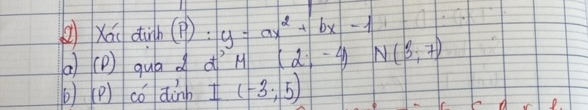 2) Xác định (P) : y = ax² + bx - 1
a) (P) qua 2 đ' M (2; -4) N(3; 7)
b) (P) có đỉnh I (-3; 5)